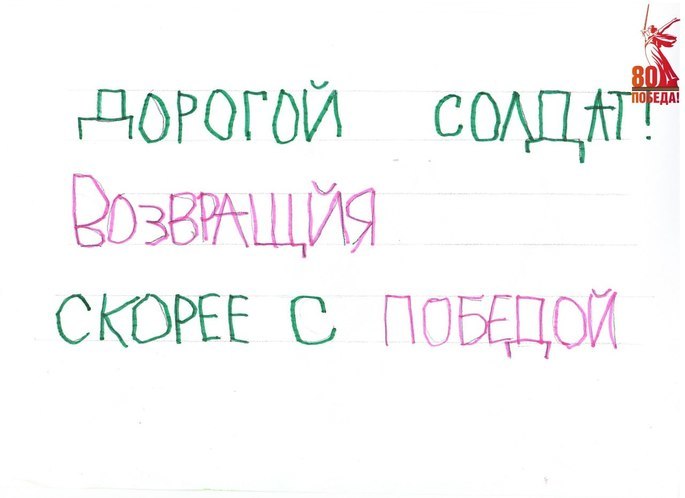 80
ПОБЕДА!
ДОРОГОЙ СОЛДАТ!
ВОЗВРАЩЙЯ
СКОРЕЕ С ПОБЕДОЙ